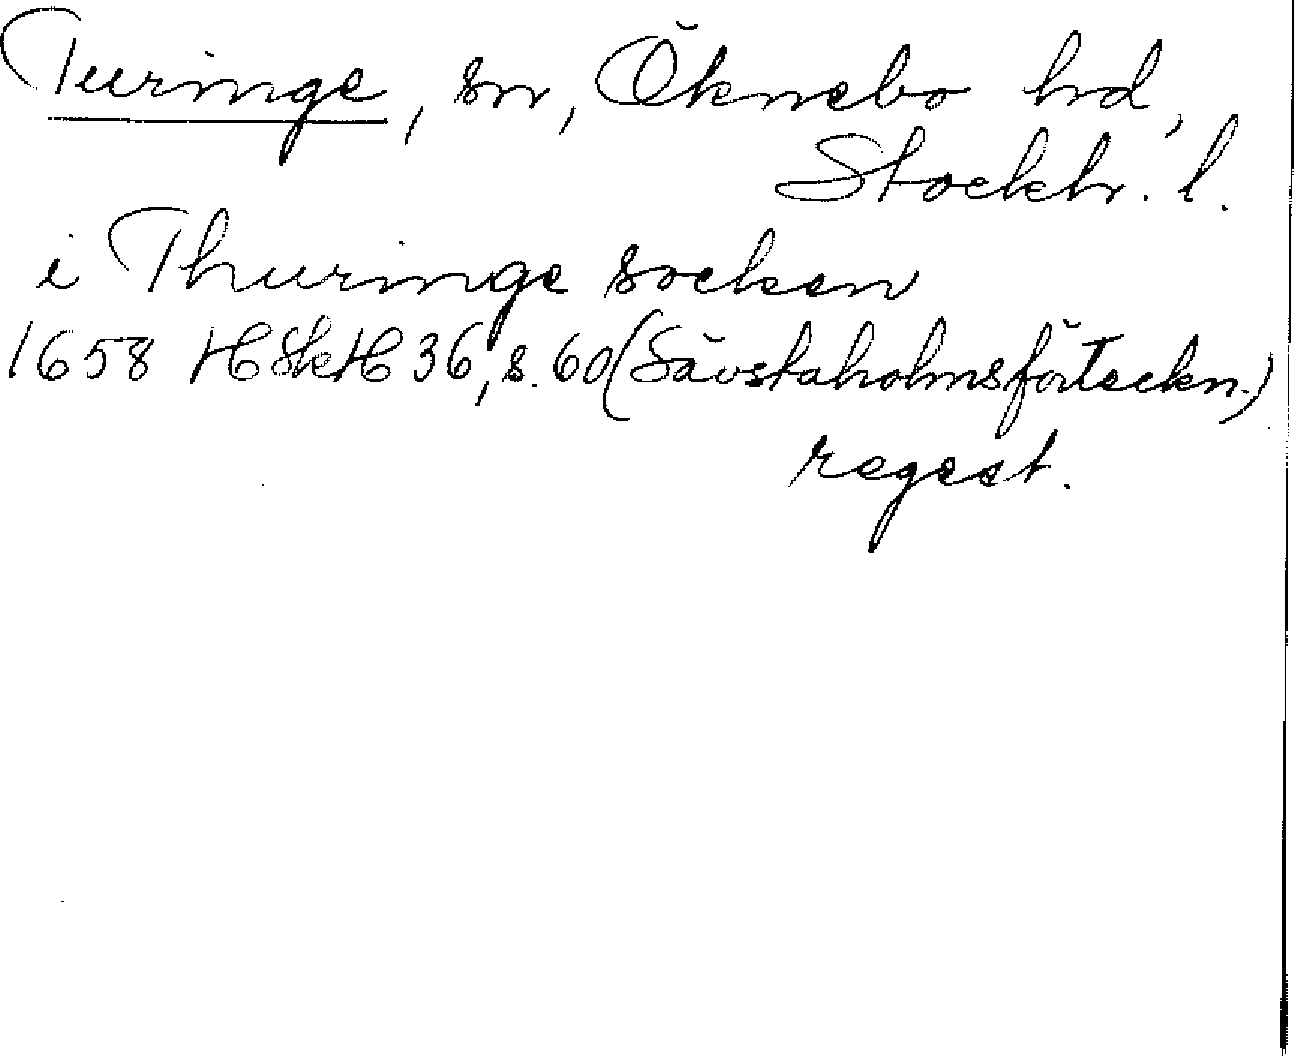 Turinge, sn, Öknebo hd,
Stockh. l.
i Thuringe socken
1658 HSkH 36, s. 60 (Sävstaholmsförteckn.)
regest.